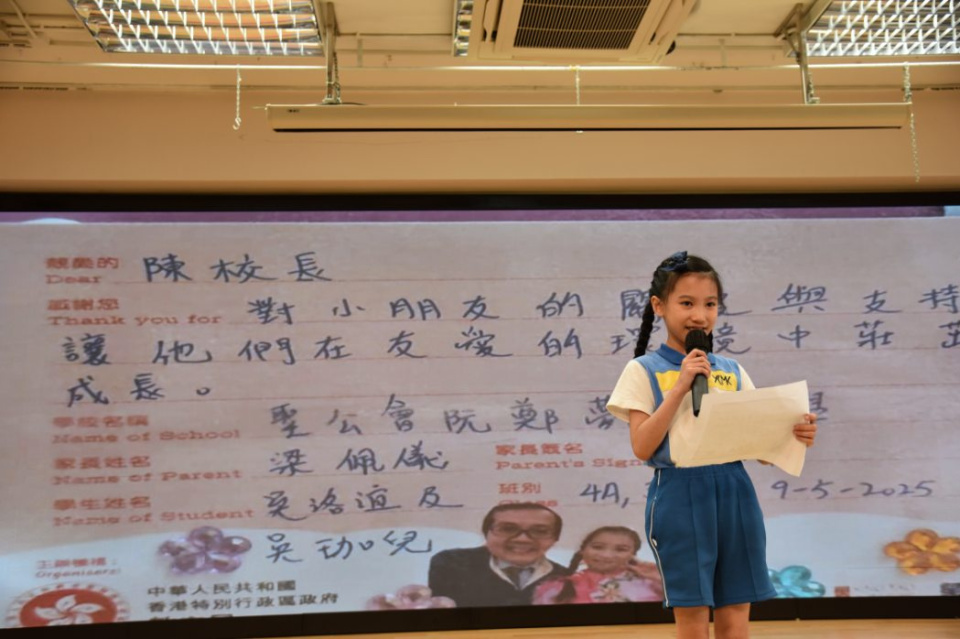 親愛的 陳校長
Dear
感謝您 對小朋友的關 與支持
Thank you for
讓他們在友愛的環境中茁
成長。
學校名稱 聖公會阮鄭夢 學
Name of School
家長姓名 梁佩儀 家長簽名
Name of Parent Parent's
學生姓名 吳洛誼及 班別 4A, 9-5-2025
Name of Student
吳珈兒
主辦機構：
Organisers:
中華人民共和國
香港特別行政區政府
YMK